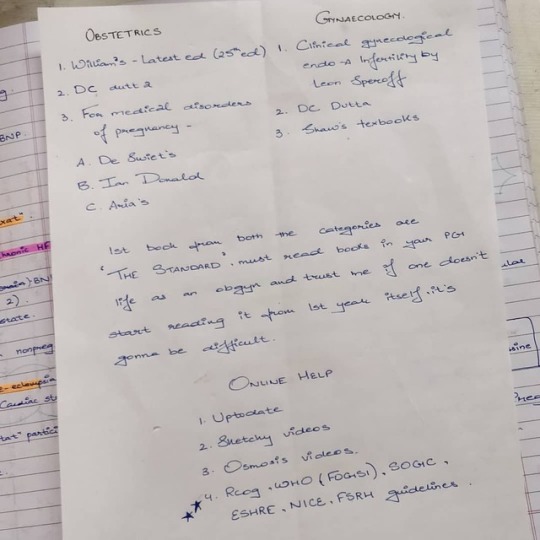 OBSTETRICS
1. William's - Latest ed (25th ed)
2. DC dutta
3. For medical disorders
of pregnancy -
A. De Swiet's
B. Ian Donald
C. Aria's
GYNAECOLOGY.
1. Clinical gynecological
endo → Infertility by
Leon Speroff
2. DC Dutta
3. Shaw's texbooks
1st book from both the categories are
"THE STANDARD", must read books in your PG
life as an obgyn and trust me if one doesn't
start reading it from 1st year itself, it's
gonna be difficult.
ONLINE HELP
1. Uptodate
2. Sketchy videos
3. Osmosis videos.
4. Rcog, WHO (FOGSI), SOGC,
ESHRE, NICE, FSRH guidelines.
BNP
xat".
chronic HF
BN
2).
state.
nonpreg
e-eclampsia
Cardiac st
tat" partici
ular
sine